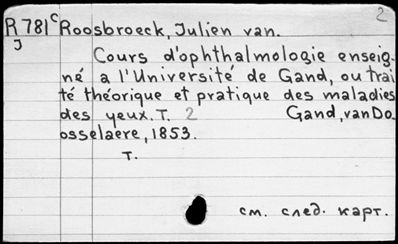 2
R 781 c Roosbroeck, Julien van.
J
Cours d'ophthalmologie enseig-
né a l'Université de Gand, ou trai
té théorique et pratique des maladies
des yeux. T. 2 Gand, van Do
osselaere, 1853.
T.
см. след. карт.